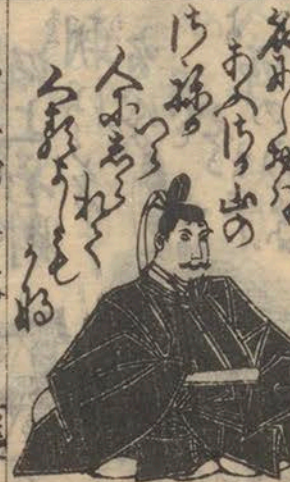 名にしおはゝ
あふさか山の
さねか
つら
人にしられて
くるよしも
かな